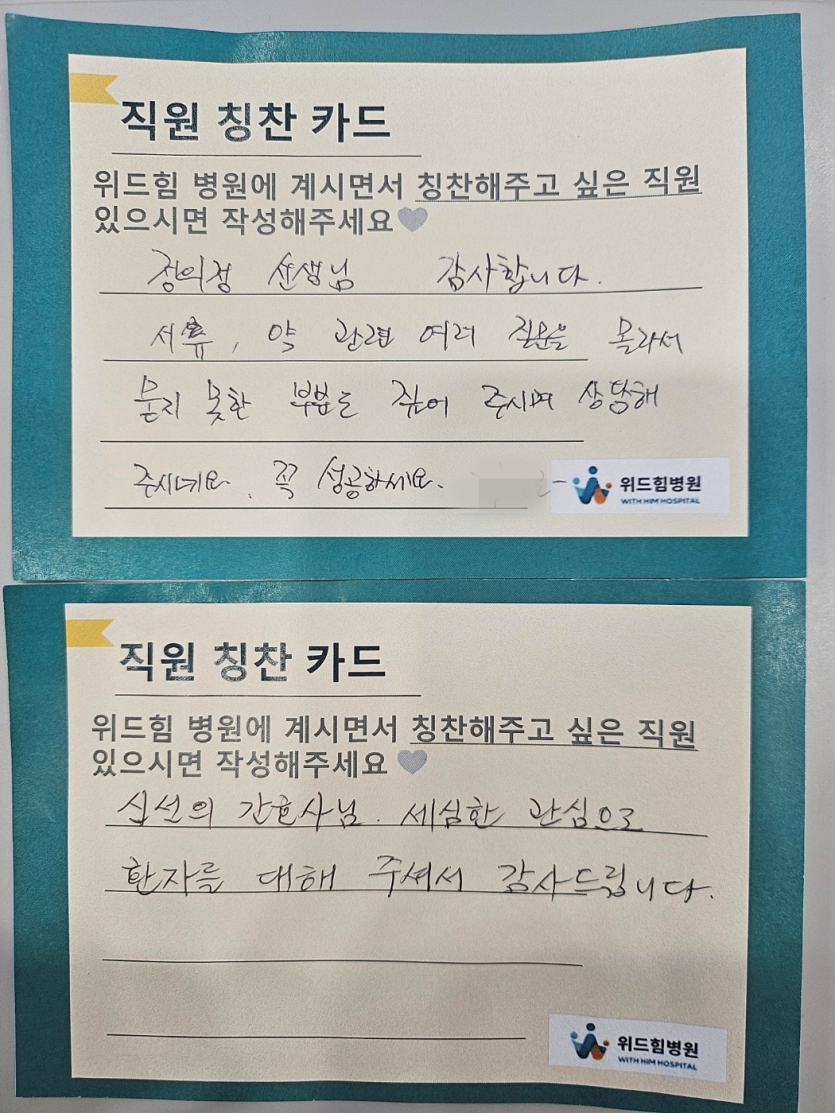 직원 칭찬 카드
위드힘 병원에 계시면서 칭찬해주고 싶은 직원
있으시면 작성해주세요
장의정 선생님 감사합니다.
서류, 약 관련 여러 질문을 몰라서
묻지 못한 부분도 짚어 주시며 상담해
주시네요. 꼭 성공하세요.
위드힘병원
WITH HIM HOSPITAL
직원 칭찬 카드
위드힘 병원에 계시면서 칭찬해주고 싶은 직원
있으시면 작성해주세요
심선의 간호사님. 세심한 관심으로
환자를 대해 주셔서 감사드립니다.
위드힘병원
WITH HIM HOSPITAL